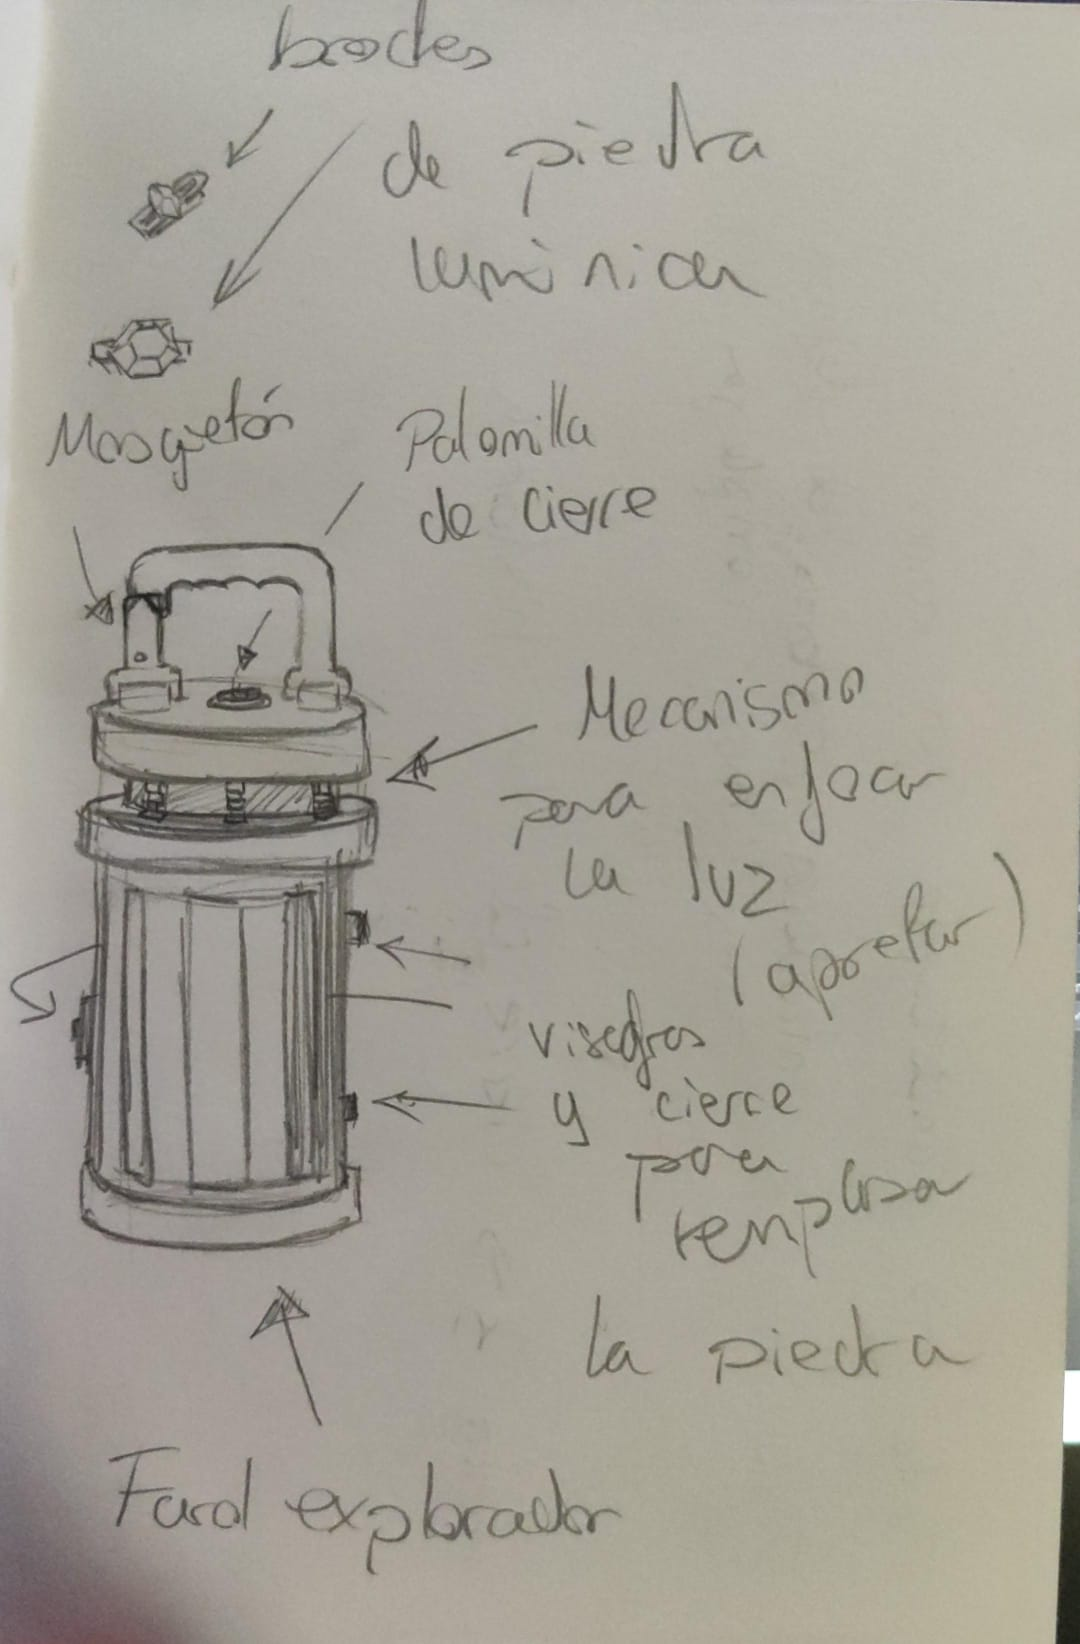 brotes
de piedra
lumínica
Mosquetón
Palomilla
de cierre
Mecanismo
para enfocar
la luz
(apretar)
visagras
y cierre
para
remplasar
la piedra
Farol explorador